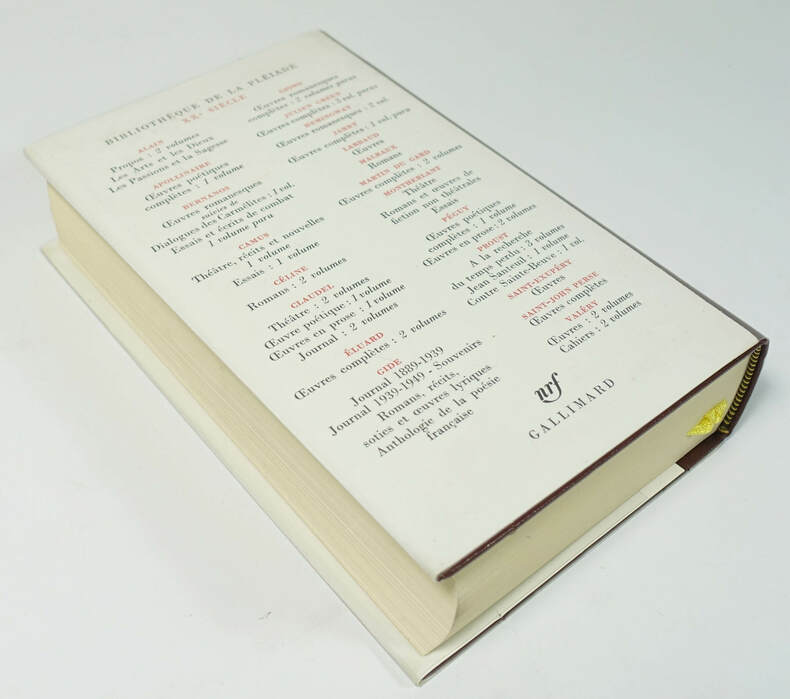 BIBLIOTHÈQUE DE LA PLÉIADE
XXᵉ SIÈCLE
ALAIN
Propos : 2 volumes
Les Arts et les Dieux
Les Passions et la Sagesse
APOLLINAIRE
Œuvres poétiques
complètes : 1 volume
BERNANOS
Œuvres romanesques
suivies de
Dialogues des Carmélites : 1 vol.
Essais et écrits de combat
1 volume paru
CAMUS
Théâtre, récits et nouvelles
1 volume
Essais : 1 volume
CÉLINE
Romans : 2 volumes
CLAUDEL
Théâtre : 2 volumes
Œuvre poétique : 1 volume
Œuvres en prose : 1 volume
Journal : 2 volumes
ÉLUARD
Œuvres complètes : 2 volumes
GIDE
Journal 1889-1939
Journal 1939-1949 - Souvenirs
Romans, récits,
soties et œuvres lyriques
Anthologie de la poésie
française
GIONO
Œuvres romanesques
complètes : 2 volumes parus
JULIEN GREEN
Œuvres complètes : 3 vol. parus
HEMINGWAY
Œuvres romanesques : 2 vol.
JARRY
Œuvres complètes : 1 vol. paru
LARBAUD
Œuvres
MALRAUX
Romans
MARTIN DU GARD
Œuvres complètes : 2 volumes
MONTHERLANT
Théâtre
Romans et œuvres de
fiction non théâtrales
Essais
PÉGUY
Œuvres poétiques
complètes : 1 volume
Œuvres en prose : 2 volumes
PROUST
A la recherche
du temps perdu : 3 volumes
Jean Santeuil : 1 volume
Contre Sainte-Beuve : 1 vol.
SAINT-EXUPÉRY
Œuvres
SAINT-JOHN PERSE
Œuvres complètes
VALÉRY
Œuvres : 2 volumes
Cahiers : 2 volumes
nrf
GALLIMARD